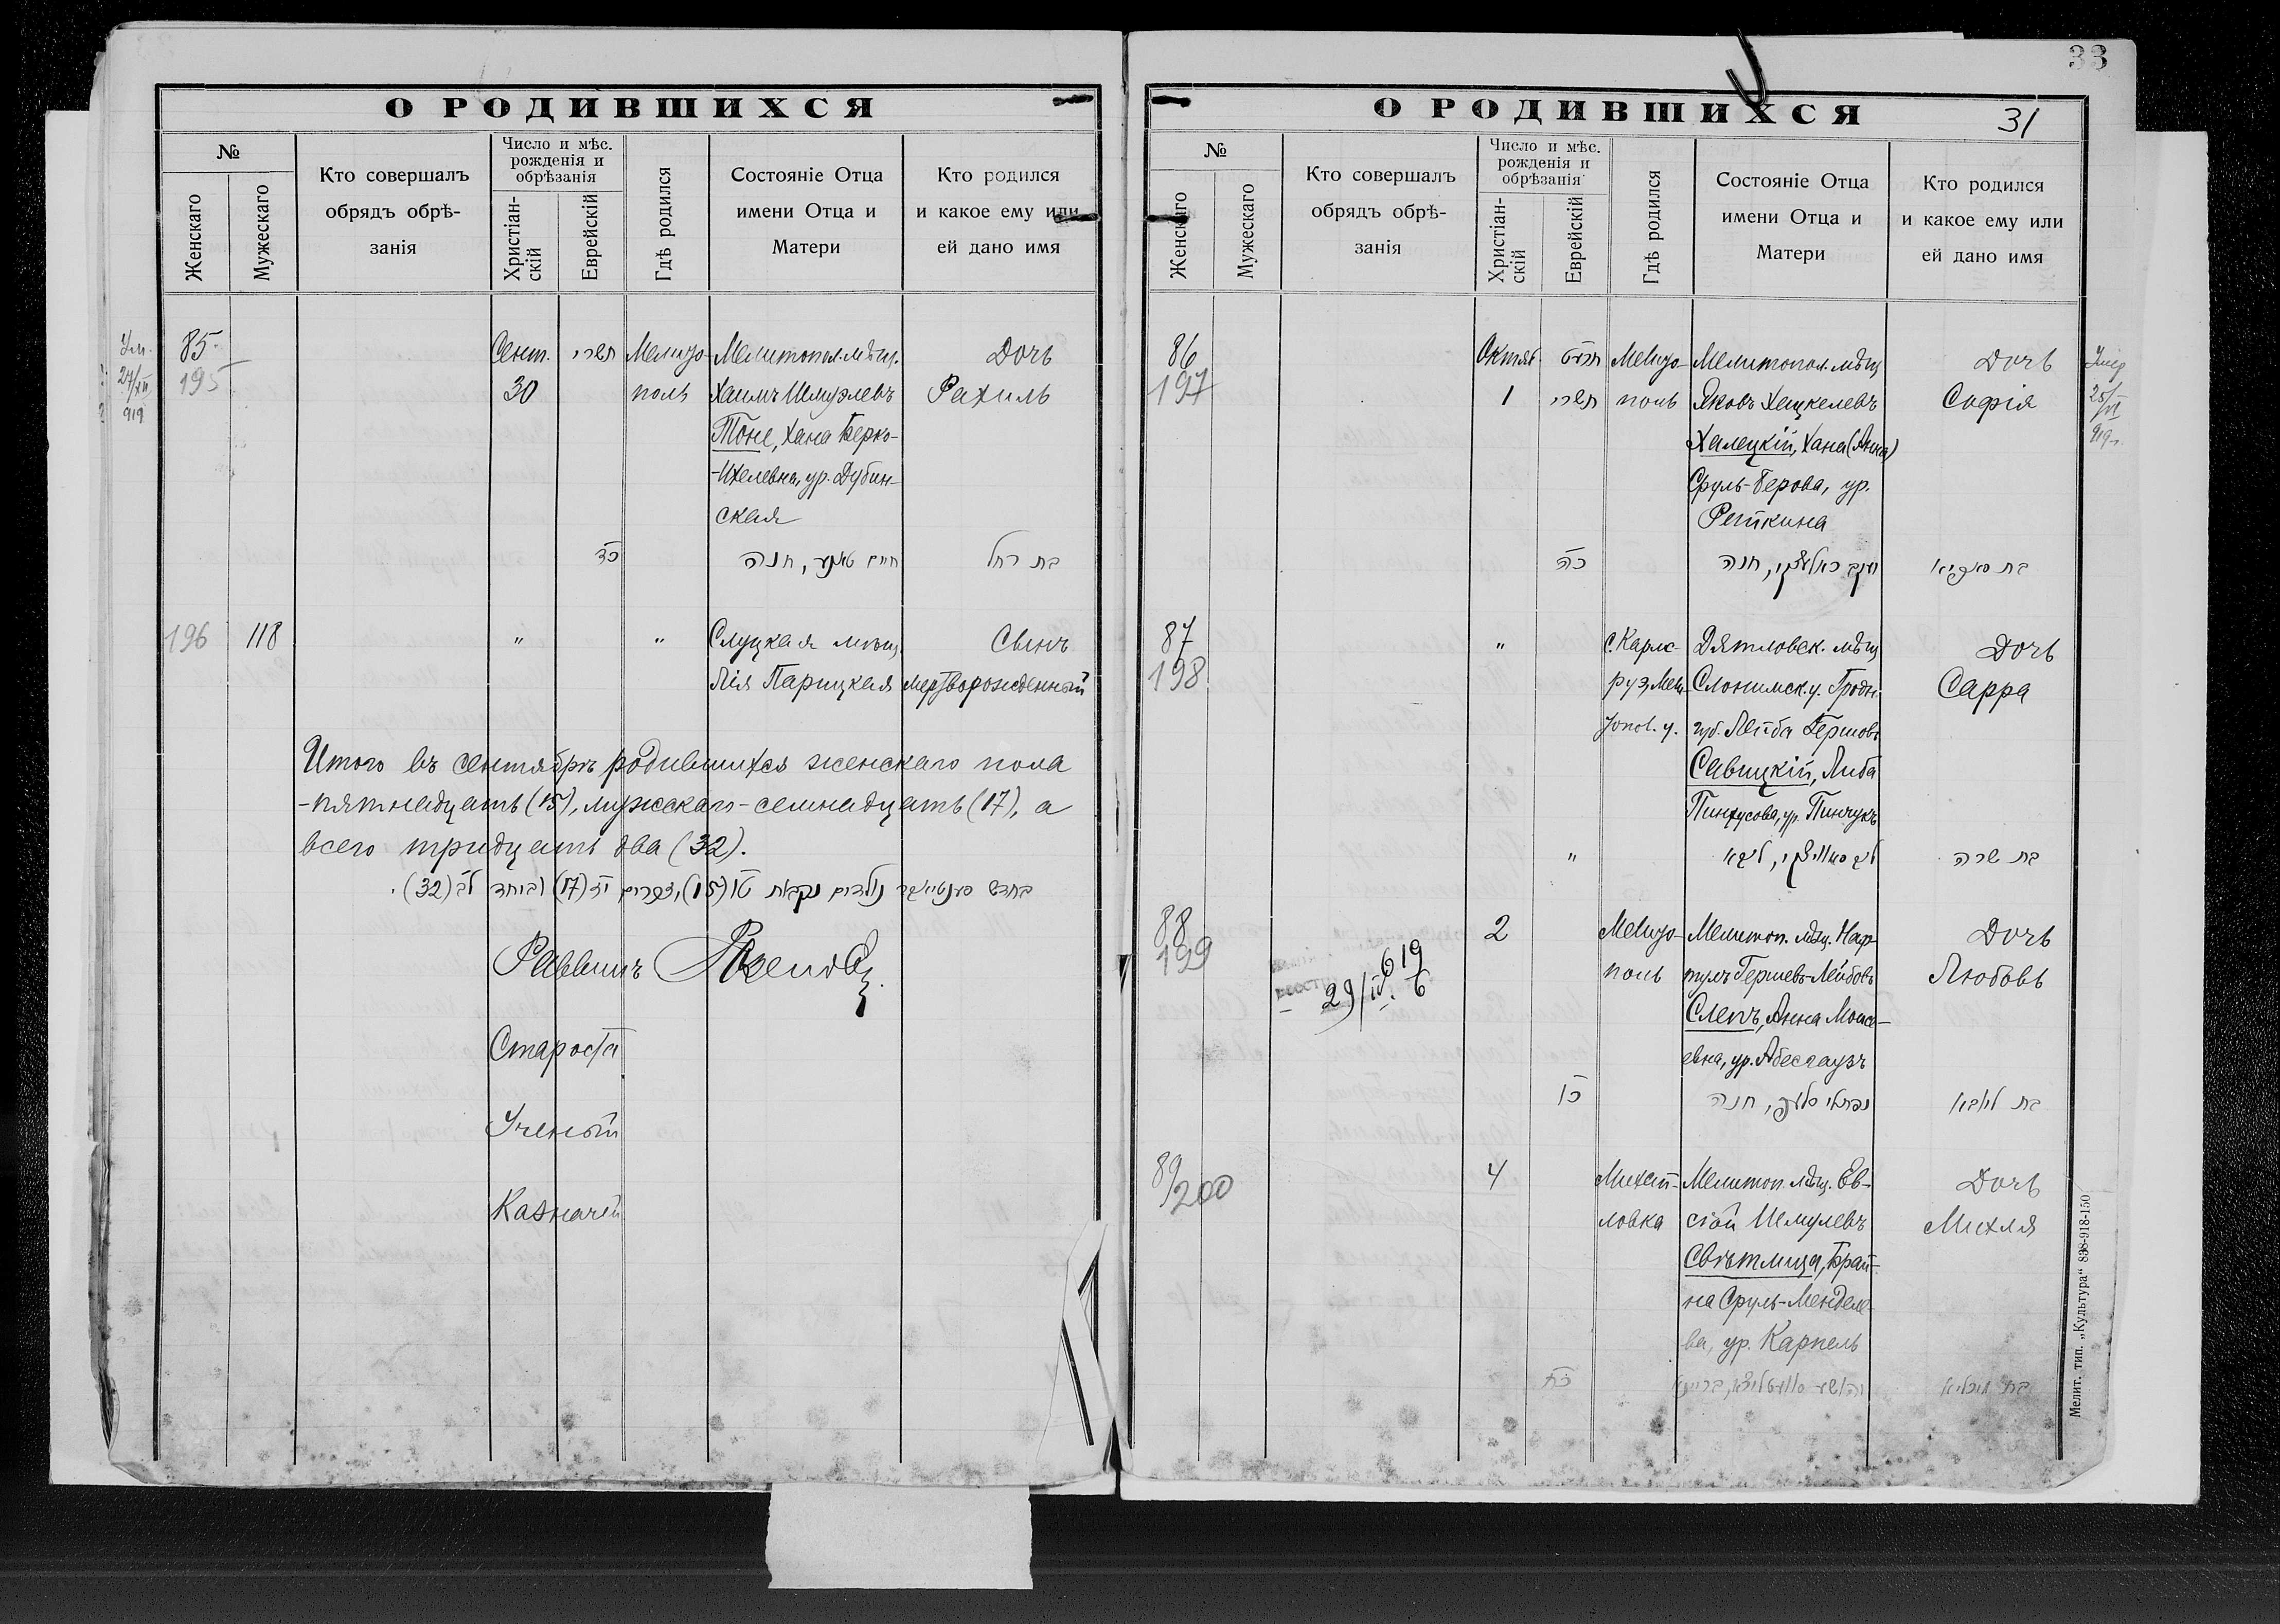 О РОДИВШИХСЯ
№
Женскаго
Мужескаго
Кто совершалъ
обрядъ обрѣ-
занія
Число и мѣс.
рожденія и
обрѣзанія
Христіан-
скій
Еврейскій
Гдѣ родился
Состояніе Отца
имени Отца и
Матери
Кто родился
и какое ему или
ей дано имя
Ум.
27/XII
919
85
195
Сент.
30
תשרי
Мелито-
поль
Мелитопол. мѣщ.
Хаимъ Шмулевъ
Тоне, Хана Берко-
-Ихелевна, ур. Дубин-
ская
Дочь
Рахиль
כד
חיים טאנע, חנה
בת רחל
196
118
"
"
Слуцкая мѣщ.
Лія Парицкая
Сынъ
мертворожденный
Итого въ сентябрѣ родившихся женскаго пола
-пятнадцать (15), мужскаго-семнадцать (17), а
всего тридцать два (32).
נולדים נקבות טו (15), זכרים יז (17) וביחד לב (32).
Раввинъ
Староста
Ученый
Казначей
33
О РОДИВШИХСЯ
31
№
Женскаго
Мужескаго
Кто совершалъ
обрядъ обрѣ-
занія
Число и мѣс.
рожденія и
обрѣзанія
Христіан-
скій
Еврейскій
Гдѣ родился
Состояніе Отца
имени Отца и
Матери
Кто родился
и какое ему или
ей дано имя
86
197
Октяб.
1
תרעט
תשרי
Мелито-
поль
Мелитопол. мѣщ
Яковъ Хацкелевъ
Халецкій, Хана (Анна)
Сруль-Берова, ур.
Рейткина
Дочь
Софія
Умер
25/VI
919 г.
כה
יעקב כאלעצקי, חנה
בת סאפיא
87
198
"
с. Карлс-
руэ, Мели-
топол. у.
Дятловск. мѣщ
Слонимск. у. Гродн.
губ. Лейба Гершовъ
Савицкій, Либа
Пинхусова, ур. Пинчукъ
Дочь
Сарра
"
לייב סאוויצקי, ליבא
בת שרה
88
199
29/IV. 619
6
2
Мелито-
поль
Мелитоп. мѣщ. Наф-
тулъ Гершевъ-Лейбовъ
Слепъ, Анна Моисе-
евна, ур. Абесгаузъ
Дочь
Любовь
כו
נפתלי סלעפ, חנה
בת ליובא
89
200
4
Михай-
ловка
Мелитоп. мѣщ. Ев-
сѣй Шмулевъ
Свѣтлица, Брай-
на Сруль-Менделе-
ва, ур. Карпель
Дочь
Михля
כח
בת מיכליא
Мелит. тип. „Культура“ 838-918-150